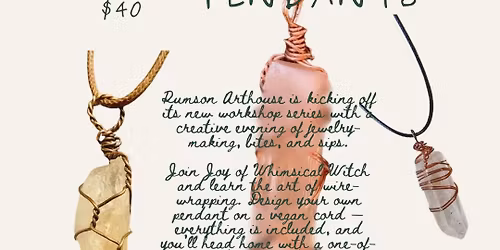 $40
PENDANTS
Rumson Arthouse is kicking off
its new workshop series with a
creative evening of jewelry-
making, bites, and sips.
Join Joy of Whimsical Witch
and learn the art of wire-
wrapping. Design your own
pendant on a vegan cord —
everything is included, and
you'll head home with a one-of-